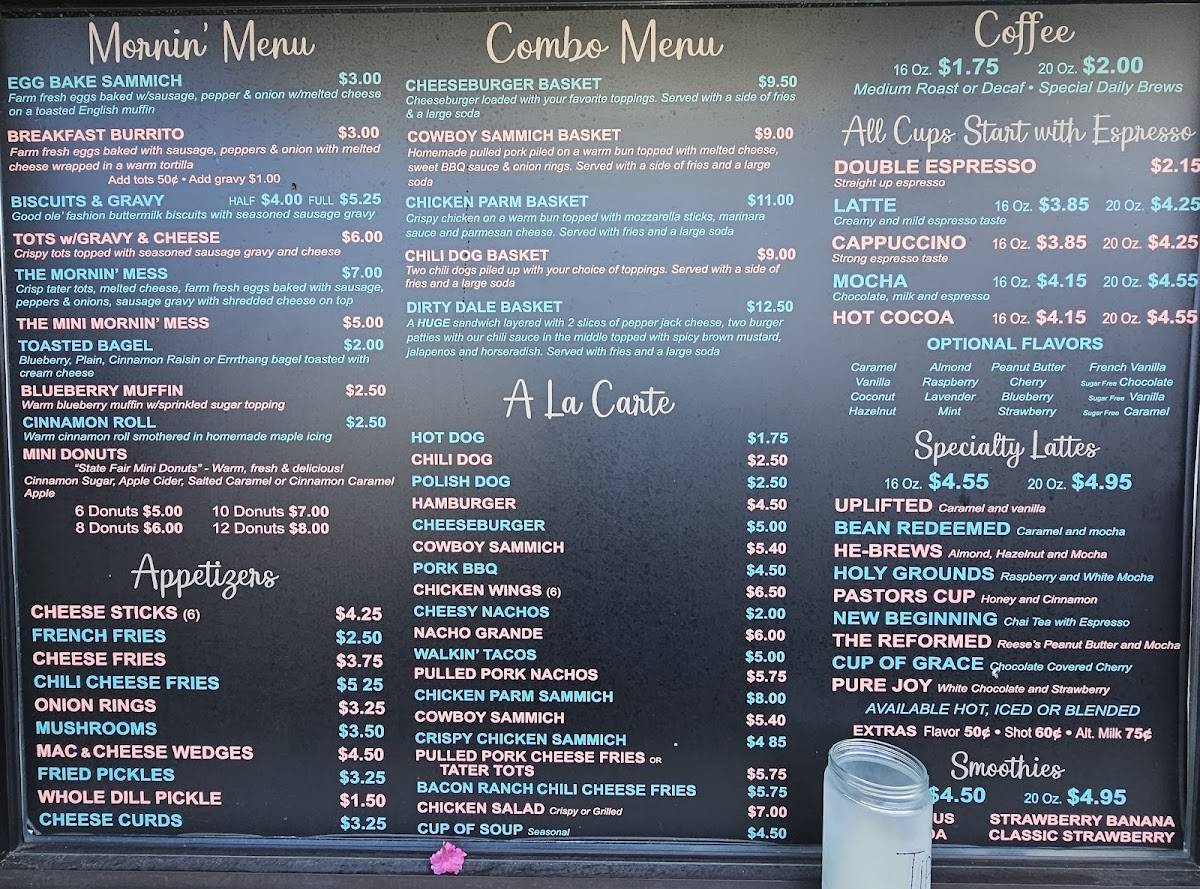 Mornin' Menu
EGG BAKE SAMMICH $3.00
Farm fresh eggs baked w/sausage, pepper & onion w/melted cheese
on a toasted English muffin
BREAKFAST BURRITO $3.00
Farm fresh eggs baked with sausage, peppers & onion with melted
cheese wrapped in a warm tortilla
Add tots 50¢ • Add gravy $1.00
BISCUITS & GRAVY HALF $4.00 FULL $5.25
Good ole' fashion buttermilk biscuits with seasoned sausage gravy
TOTS w/GRAVY & CHEESE $6.00
Crispy tots topped with seasoned sausage gravy and cheese
THE MORNIN' MESS $7.00
Crisp tater tots, melted cheese, farm fresh eggs baked with sausage,
peppers & onions, sausage gravy with shredded cheese on top
THE MINI MORNIN' MESS $5.00
TOASTED BAGEL $2.00
Blueberry, Plain, Cinnamon Raisin or Errrthang bagel toasted with
cream cheese
BLUEBERRY MUFFIN $2.50
Warm blueberry muffin w/sprinkled sugar topping
CINNAMON ROLL $2.50
Warm cinnamon roll smothered in homemade maple icing
MINI DONUTS
"State Fair Mini Donuts" - Warm, fresh & delicious!
Cinnamon Sugar, Apple Cider, Salted Caramel or Cinnamon Caramel
Apple
6 Donuts $5.00 10 Donuts $7.00
8 Donuts $6.00 12 Donuts $8.00
Appetizers
CHEESE STICKS (6) $4.25
FRENCH FRIES $2.50
CHEESE FRIES $3.75
CHILI CHEESE FRIES $5 25
ONION RINGS $3.25
MUSHROOMS $3.50
MAC & CHEESE WEDGES $4.50
FRIED PICKLES $3.25
WHOLE DILL PICKLE $1.50
CHEESE CURDS $3.25
Combo Menu
CHEESEBURGER BASKET $9.50
Cheeseburger loaded with your favorite toppings. Served with a side of fries
& a large soda
COWBOY SAMMICH BASKET $9.00
Homemade pulled pork piled on a warm bun topped with melted cheese,
sweet BBQ sauce & onion rings. Served with a side of fries and a large
soda
CHICKEN PARM BASKET $11.00
Crispy chicken on a warm bun topped with mozzarella sticks, marinara
sauce and parmesan cheese. Served with fries and a large soda
CHILI DOG BASKET $9.00
Two chili dogs piled up with your choice of toppings. Served with a side of
fries and a large soda
DIRTY DALE BASKET $12.50
A HUGE sandwich layered with 2 slices of pepper jack cheese, two burger
patties with our chili sauce in the middle topped with spicy brown mustard,
jalapenos and horseradish. Served with fries and a large soda
A La Carte
HOT DOG $1.75
CHILI DOG $2.50
POLISH DOG $2.50
HAMBURGER $4.50
CHEESEBURGER $5.00
COWBOY SAMMICH $5.40
PORK BBQ $4.50
CHICKEN WINGS (6) $6.50
CHEESY NACHOS $2.00
NACHO GRANDE $6.00
WALKIN' TACOS $5.00
PULLED PORK NACHOS $5.75
CHICKEN PARM SAMMICH $8.00
COWBOY SAMMICH $5.40
CRISPY CHICKEN SAMMICH $4 85
PULLED PORK CHEESE FRIES OR
TATER TOTS $5.75
BACON RANCH CHILI CHEESE FRIES $5.75
CHICKEN SALAD Crispy or Grilled $7.00
CUP OF SOUP Seasonal $4.50
Coffee
16 Oz. $1.75 20 Oz. $2.00
Medium Roast or Decaf • Special Daily Brews
All Cups Start with Espresso
DOUBLE ESPRESSO $2.15
Straight up espresso
LATTE 16 Oz. $3.85 20 Oz. $4.25
Creamy and mild espresso taste
CAPPUCCINO 16 Oz. $3.85 20 Oz. $4.25
Strong espresso taste
MOCHA 16 Oz. $4.15 20 Oz. $4.55
Chocolate, milk and espresso
HOT COCOA 16 Oz. $4.15 20 Oz. $4.55
OPTIONAL FLAVORS
Caramel Almond Peanut Butter French Vanilla
Vanilla Raspberry Cherry Sugar Free Chocolate
Coconut Lavender Blueberry Sugar Free Vanilla
Hazelnut Mint Strawberry Sugar Free Caramel
Specialty Lattes
16 Oz. $4.55 20 Oz. $4.95
UPLIFTED Caramel and vanilla
BEAN REDEEMED Caramel and mocha
HE-BREWS Almond, Hazelnut and Mocha
HOLY GROUNDS Raspberry and White Mocha
PASTORS CUP Honey and Cinnamon
NEW BEGINNING Chai Tea with Espresso
THE REFORMED Reese's Peanut Butter and Mocha
CUP OF GRACE Chocolate Covered Cherry
PURE JOY White Chocolate and Strawberry
AVAILABLE HOT, ICED OR BLENDED
EXTRAS Flavor 50¢ • Shot 60¢ • Alt. Milk 75¢
Smoothies
$4.50 20 Oz. $4.95
STRAWBERRY BANANA
CLASSIC STRAWBERRY